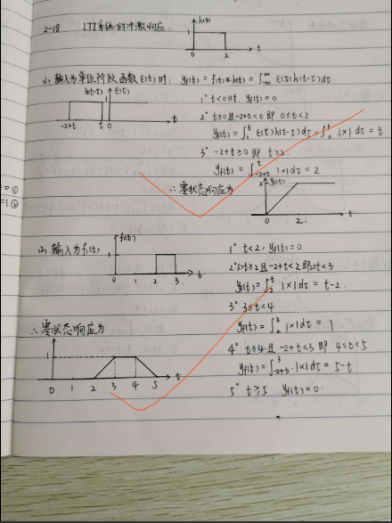 2-18 LTI系统的冲激响应 h(t)
1
0 2 t
(1) 输入为单位阶跃函数ε(t)时, yf(t) = f(t)*h(t) = ∫ ε(τ)h(t-τ)dτ
h(t-τ) ε(τ)
-2+t t 0 τ
1° t<0时, yf(t)=0
2° t≥0且-2+t<0 即 0≤t<2
yf(t) = ∫ ε(τ)h(t-τ)dτ = ∫ 1×1 dτ = t
3° -2+t≥0 即 t≥2
yf(t) = ∫ 1×1dτ = 2
∴ 零状态响应为
2 yf(t)
0 2 t
(2) 输入为f(t)
f(t)
1
0 1 2 3 t
1° t<2, yf(t)=0
2° t≥2且-2+t<2 即2≤t<3
yf(t) = ∫ 1×1dτ = t-2
3° 3≤t<4
yf(t) = ∫ 1×1dτ = 1
∴ 零状态响应为
4° t≥4且 -2+t<3 即 4≤t<5
yf(t) = ∫ 1×1dτ = 5-t
5° t≥5 yf(t)=0
1
0 1 2 3 4 5 t